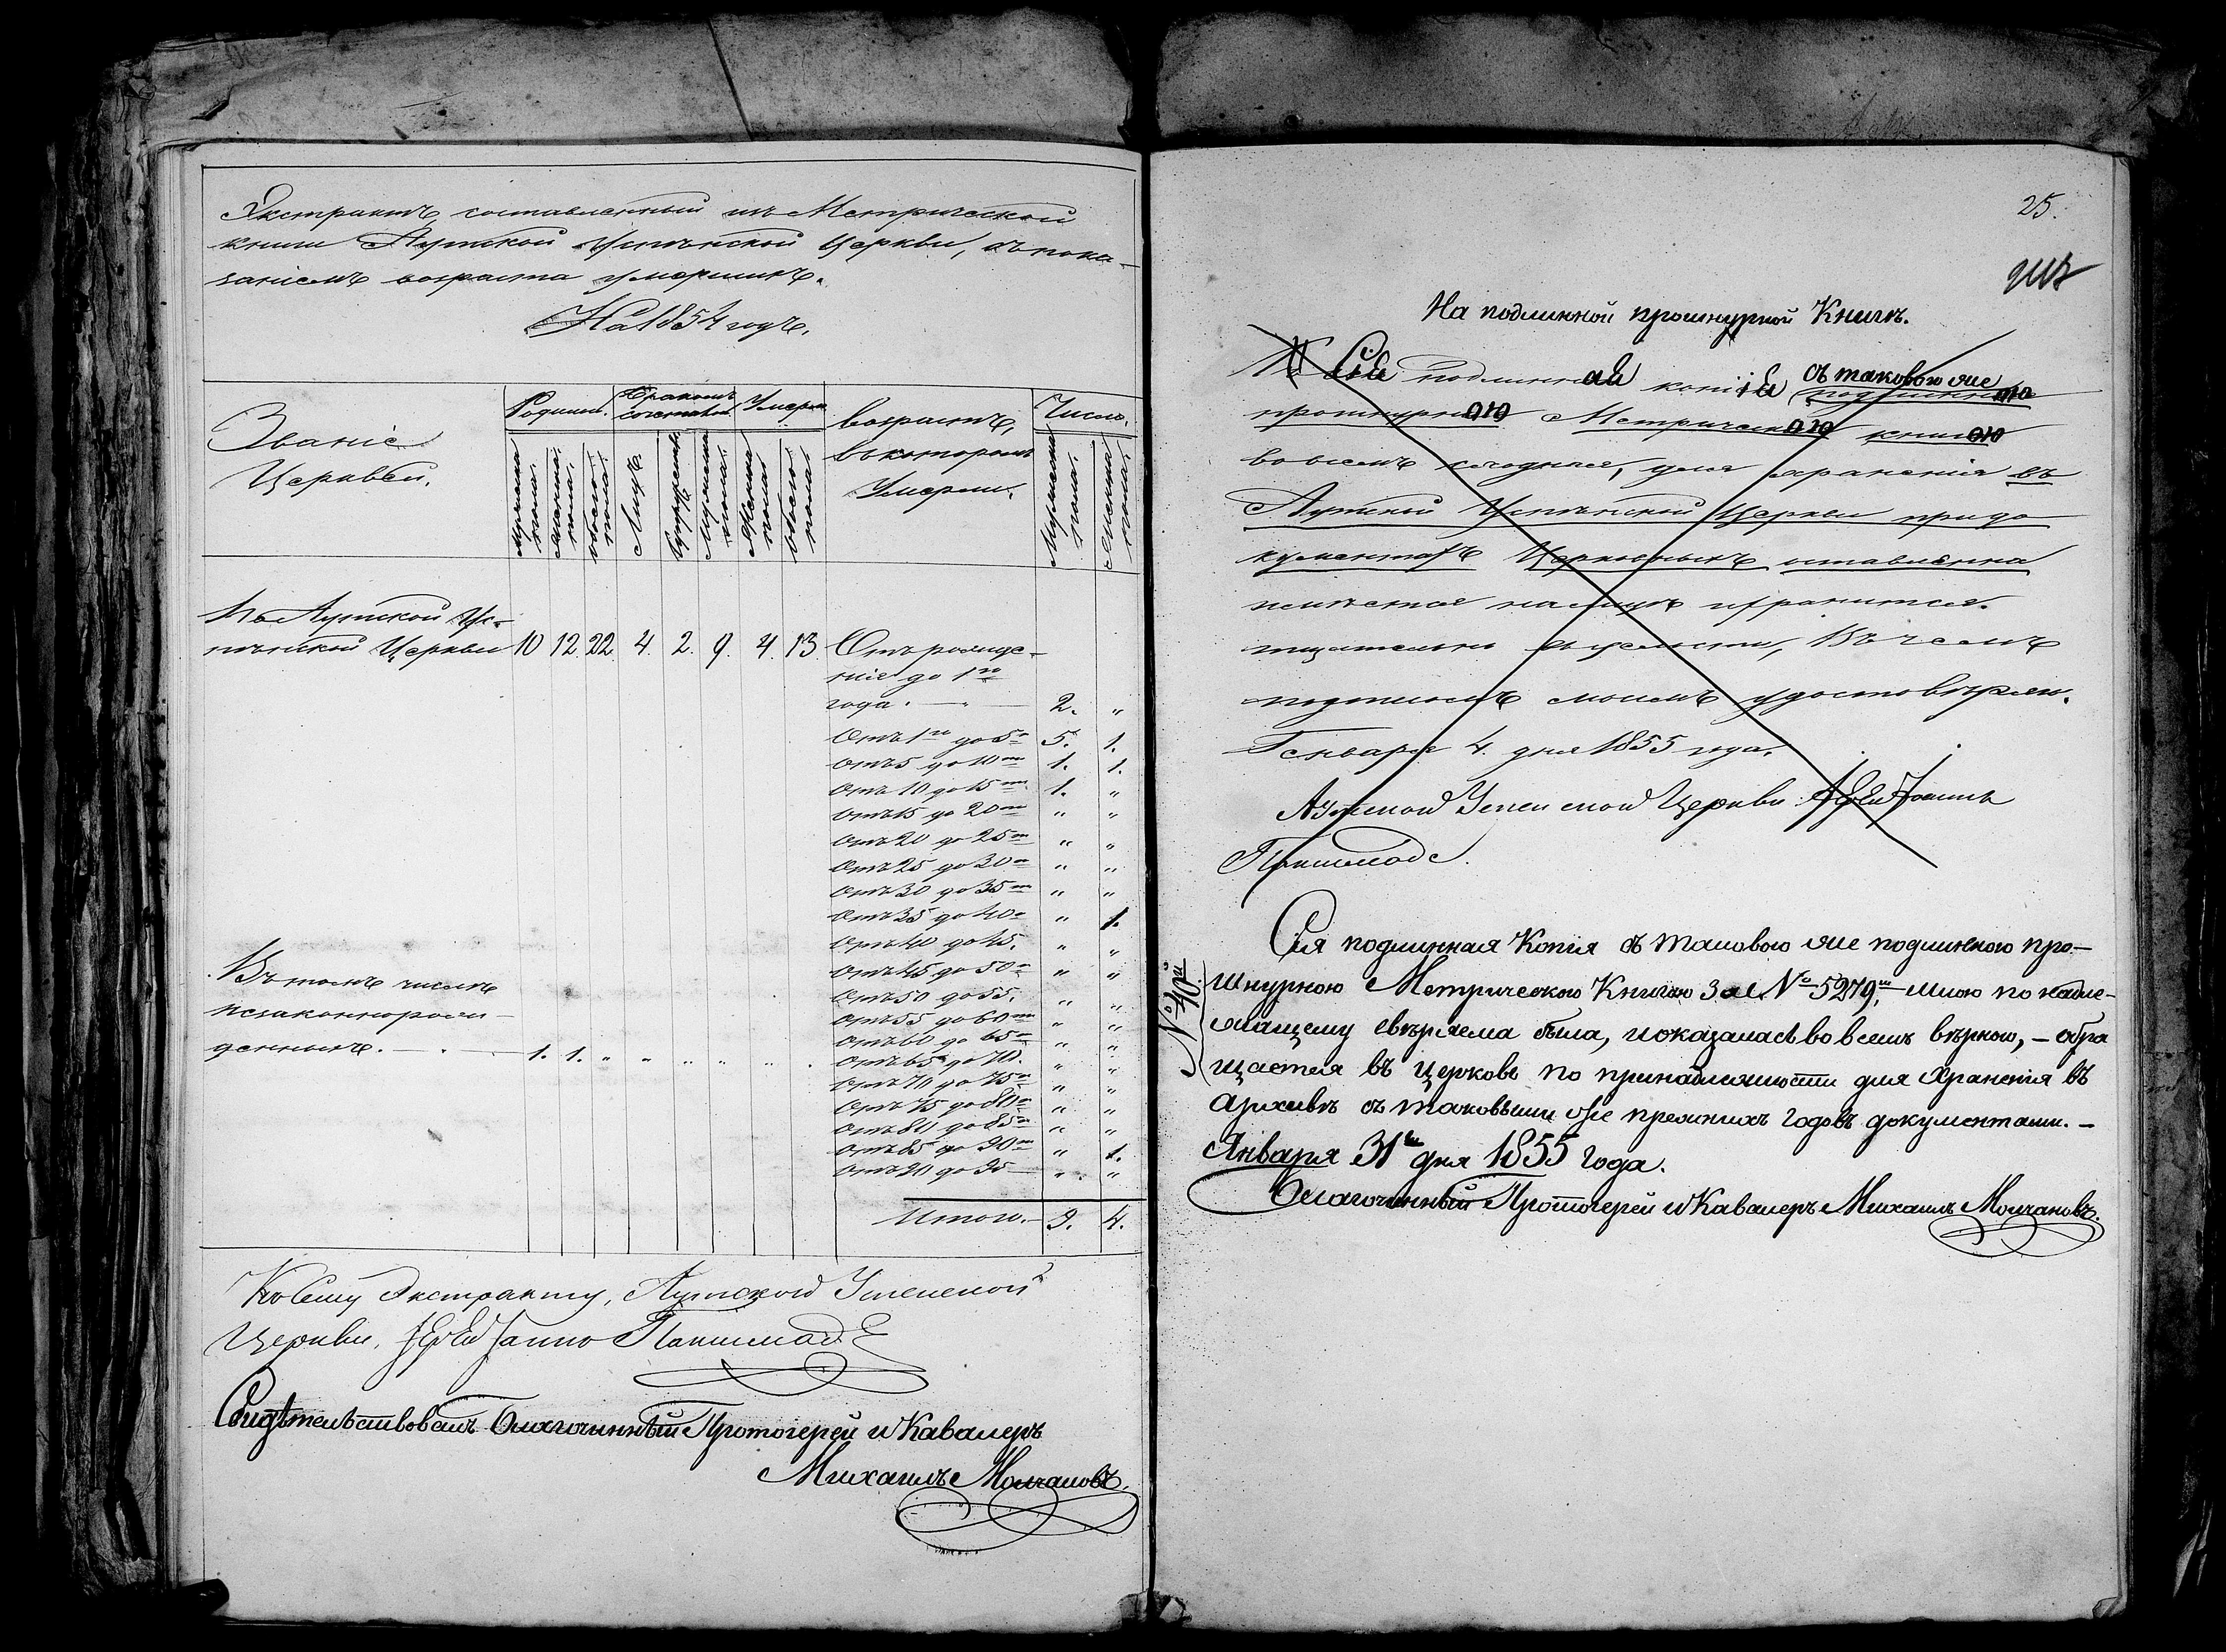 Экстрактъ, составленный изъ Метрической
книги Аутской Успѣнской Церкви, съ пока-
занiемъ возраста умершихъ.
На 1854 годъ.
Званiе
Церквей.
Родились.
Мужеска пола.
Женска пола.
Обоего пола.
Бракомъ сочетались
Лицъ.
Супружествъ
Умерло
Мужеска пола.
Женска пола
Обоего пола
возрастъ,
въ которомъ
Умерли.
Число.
Мужеска пола.
Женска пола.
Въ Аутской Ус-
пѣнской Церкви 10 12. 22. 4. 2. 9. 4. 13.
Отъ рожде-
нiя до 1го
года. — 2. „
Отъ 1го до 5 5. 1.
Отъ 5 до 10ти 1. 1.
Отъ 10 до 15ти 1. „
Отъ 15 до 20ти „ „
Отъ 20 до 25ти „ „
Отъ 25 до 30ти „ „
Отъ 30 до 35ти „ „
Отъ 35 до 40 „ 1.
Отъ 40 до 45. „ „
Отъ 45 до 50 „ „
Отъ 50 до 55. „ „
Отъ 55 до 60ти „ „
Отъ 60 до 65 „ „
Отъ 65 до 70. „ „
Отъ 70 до 75 „ „
Отъ 75 до 80 „ „
Отъ 80 до 85 „ „
Отъ 85 до 90 „ 1.
Отъ 90 до 95 „ „
Въ томъ числѣ
незаконнорож-
денныхъ. — 1. 1. „ „ „ „ „ .
Итого. — 9. 4.
Ко Сему Экстракту, Аутской Успенской
Церкви, Iерей
Свидѣтельствовалъ Благочинный Протоiерей и Кавалеръ
Михаилъ Молчановъ.
25.
На подлинной прошнурной Книгѣ.
Сiя подлинная копiя съ таковою же подлинною
прошнурною Метрическою книгою
во всемъ сходная, для храненiя въ
Аутской Успѣнской Церкви при до
кументахъ Церковныхъ оставлена
и хранится.
тщательно въ целости, Въ чемъ
подписомъ моимъ удостовѣряю.
Генваря 4. дня 1855 года.
Аутской Успенской Церкви Iерей
Сiя подлинная Копiя съ таковою же подлинною про-
шнурною Метрическою Книгою за №5279м мною по надле-
жащему свѣряема была, и оказалась во всемъ вѣрною, — обра
щается въ церковь по принадлежности для храненiя въ
Архивѣ съ таковыми же прежнихъ годовъ документами. —
№ 40й
Января 31го дня 1855 года.
Благочинный Протоiерей и Кавалеръ Михаилъ Молчановъ.